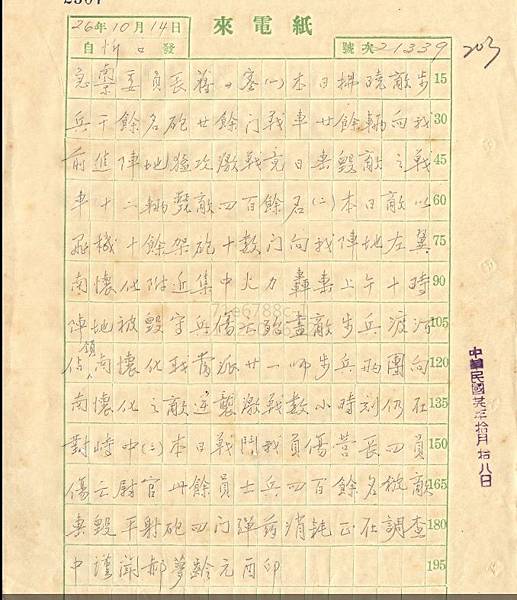 來電紙
26年10月14日
自忻口發
號次21339
203
急密委員長蔣:密(一)本日拂曉敵步 15
兵千餘名砲廿餘門戰車廿餘輛向我 30
前進陣地猛攻激戰竟日擊毀敵之戰 45
車十二輛斃敵四百餘名(二)本日敵以 60
飛機十餘架砲十數門向我陣地左翼 75
南懷化附近集中火力轟擊上午十時 90
陣地被毀守兵傷亡殆盡敵步兵渡河 105
佔領南懷化我當派廿一師步兵兩團向 120
南懷化之敵逆襲激戰數小時刻仍在 135
對峙中(三)本日戰鬥我負傷營長四員 150
傷亡尉官卅餘員士兵四百餘名被敵 165
擊毀平射砲四門彈藥消耗正在調查 180
中謹聞郝夢齡元酉印 195
中華民國廿年拾月拾八日